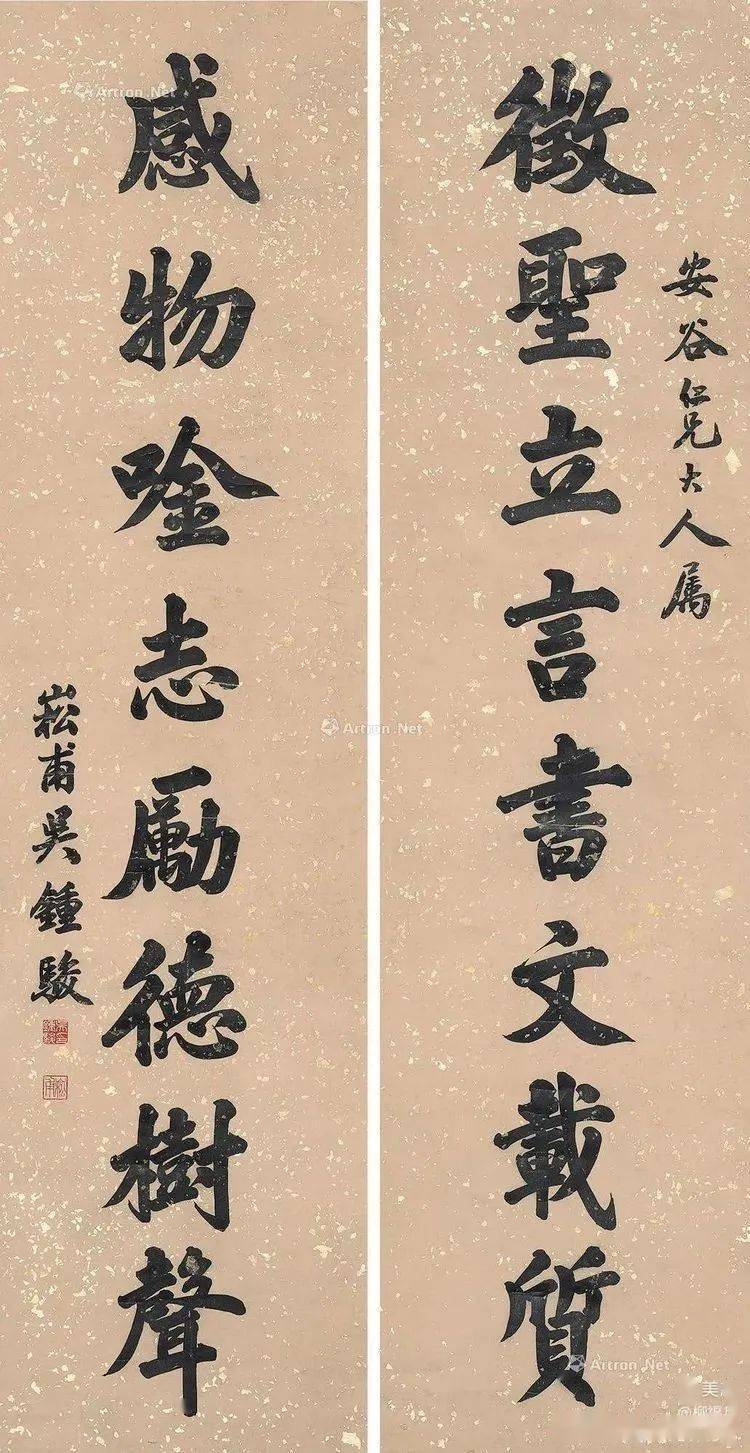 安谷仁兄大人属
徵聖立言書文載質
感物唫志勵德樹聲
崧甫吳鍾駿
崧甫
Artron.Net
Artron.Net
Artron.Net
美